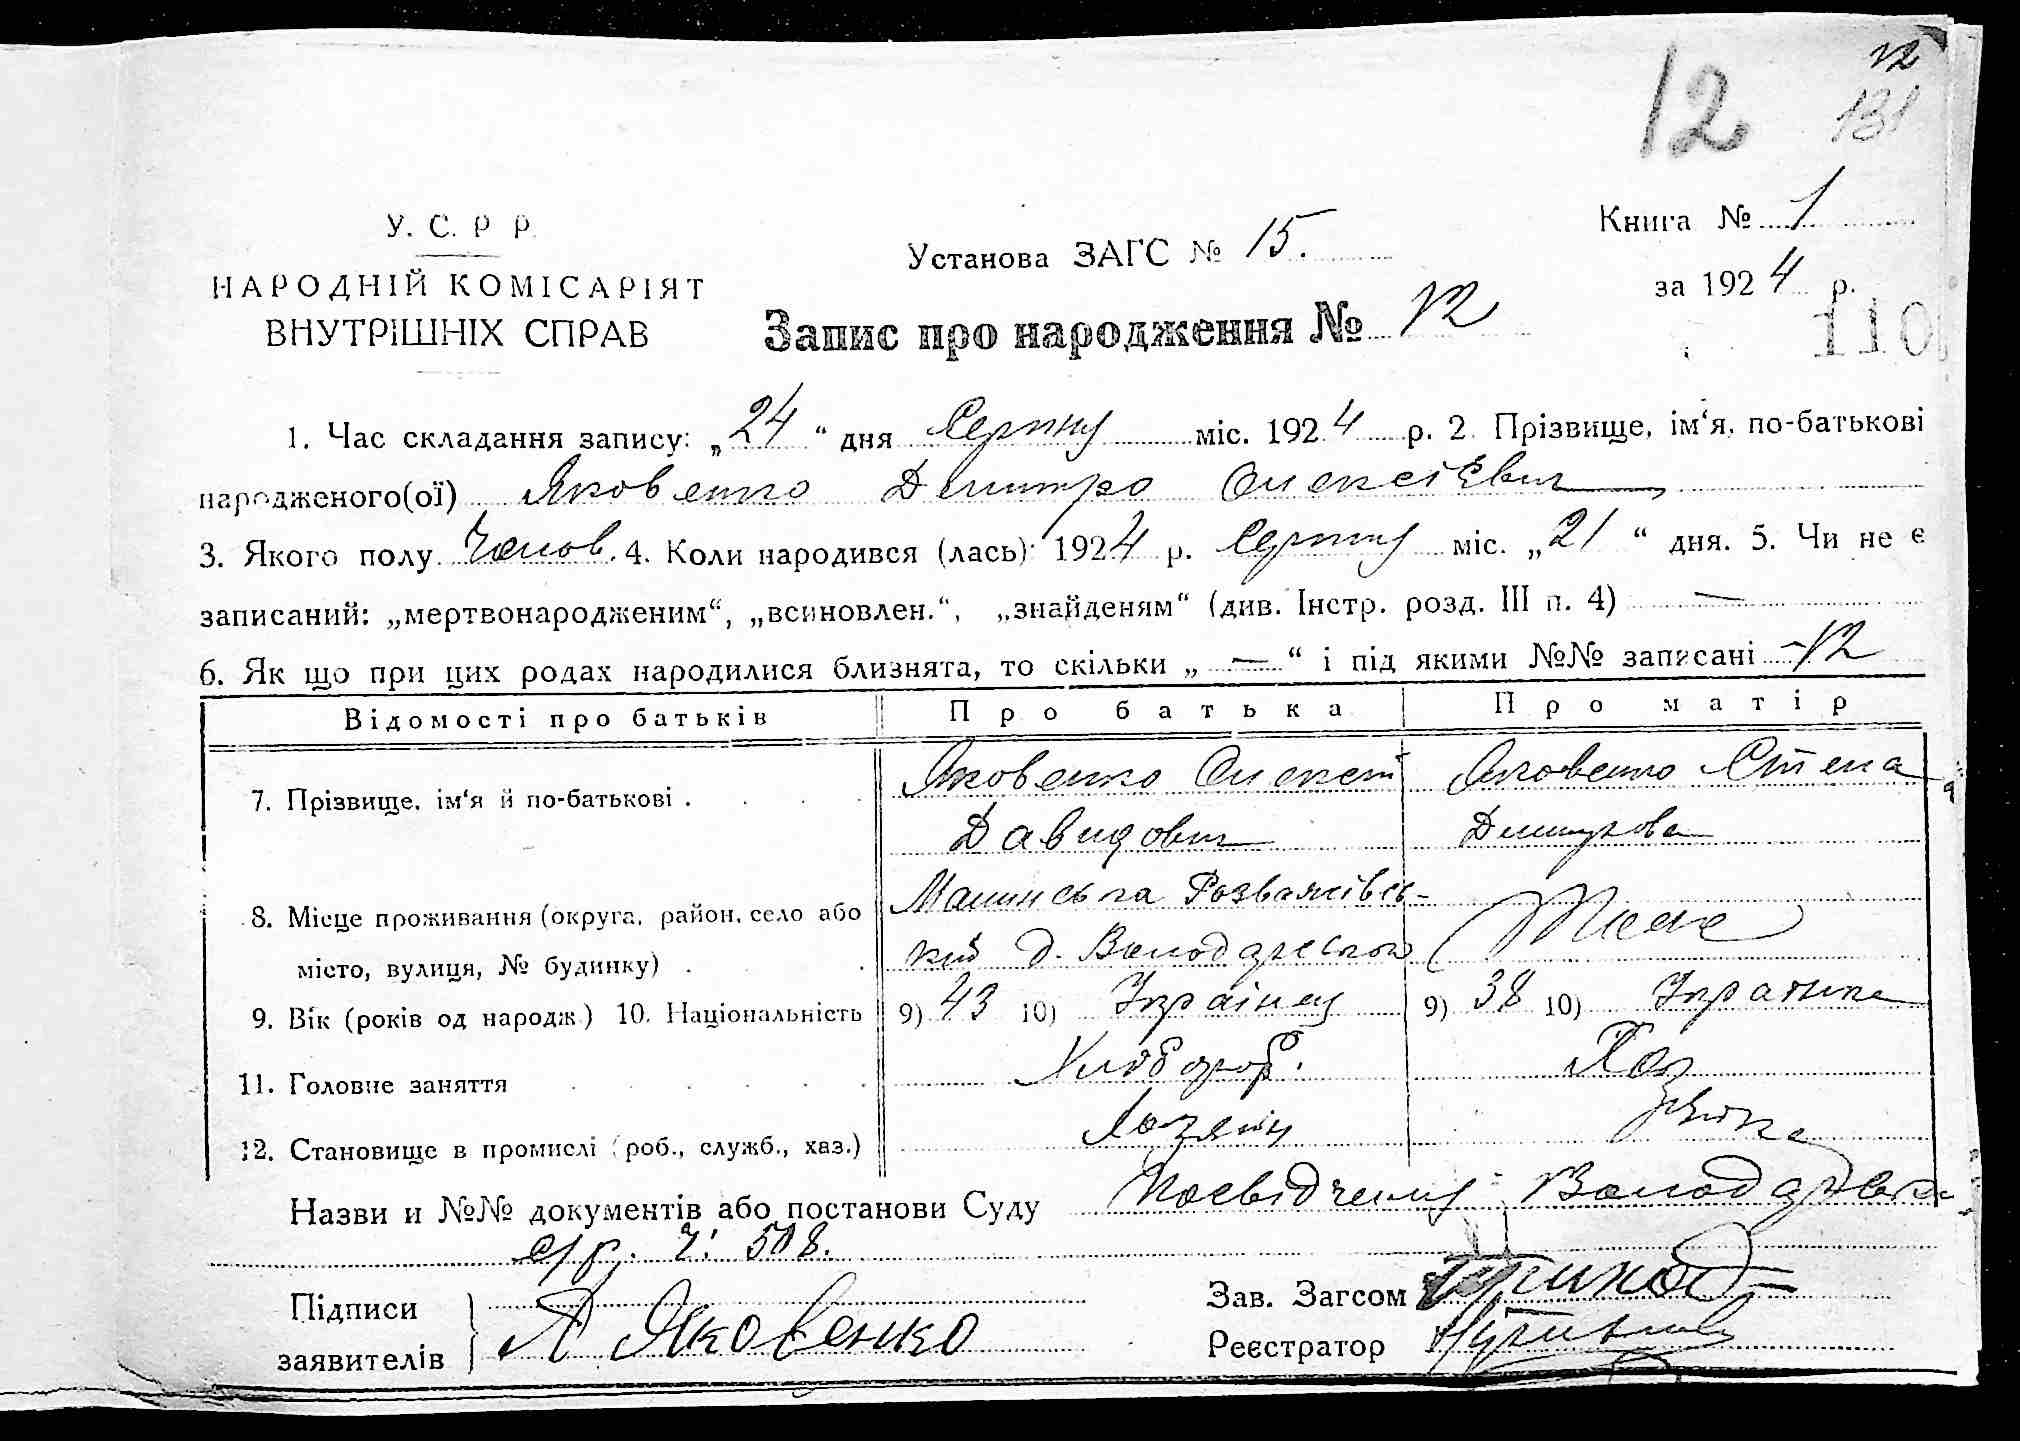 12
12
131
У. С. Р. Р.
Книга № 1
Установа ЗАГС № 15.
НАРОДНІЙ КОМІСАРІЯТ
за 1924 р.
ВНУТРІШНІХ СПРАВ
Запис про народження № 12
110
1. Час складання запису: „24“ дня Серпня міс. 1924 р. 2. Прізвище, ім‘я, по-батькові
народженого(ої) Яковенко Дмитро Олексієвич
3. Якого полу Чолов. 4. Коли народився (лась): 1924 р. Серпня міс. „21“ дня. 5. Чи не є
записаний: „мертвонародженим“, „всиновлен.“, „знайденям“ (див. Інстр. розд. III п. 4) —
6. Як що при цих родах народилися близнята, то скільки „ — “ і під якими №№ записані –12
Відомості про батьків Про батька Про матір
7. Прізвище, ім‘я й по-батькові . Яковенко Олексій Яковенко
Давидович Дмитрова
8. Місце проживання (округа, район, село або Розважівсь-
місто, вулиця, № будинку) . кий д. Володарська
9. Вік (років од народж.) 10. Національність 9) 43 10) Українец 9) 38 10) Українка
11. Головне заняття Хлібороб.
12. Становище в промислі (роб., служб., хаз.) Хозяїн
Назви и №№ документів або постанови Суду Посвідчення Володарська
с/р. ч: 508.
Підписи Зав. Загсом
заявителів Я Яковенко Реєстратор